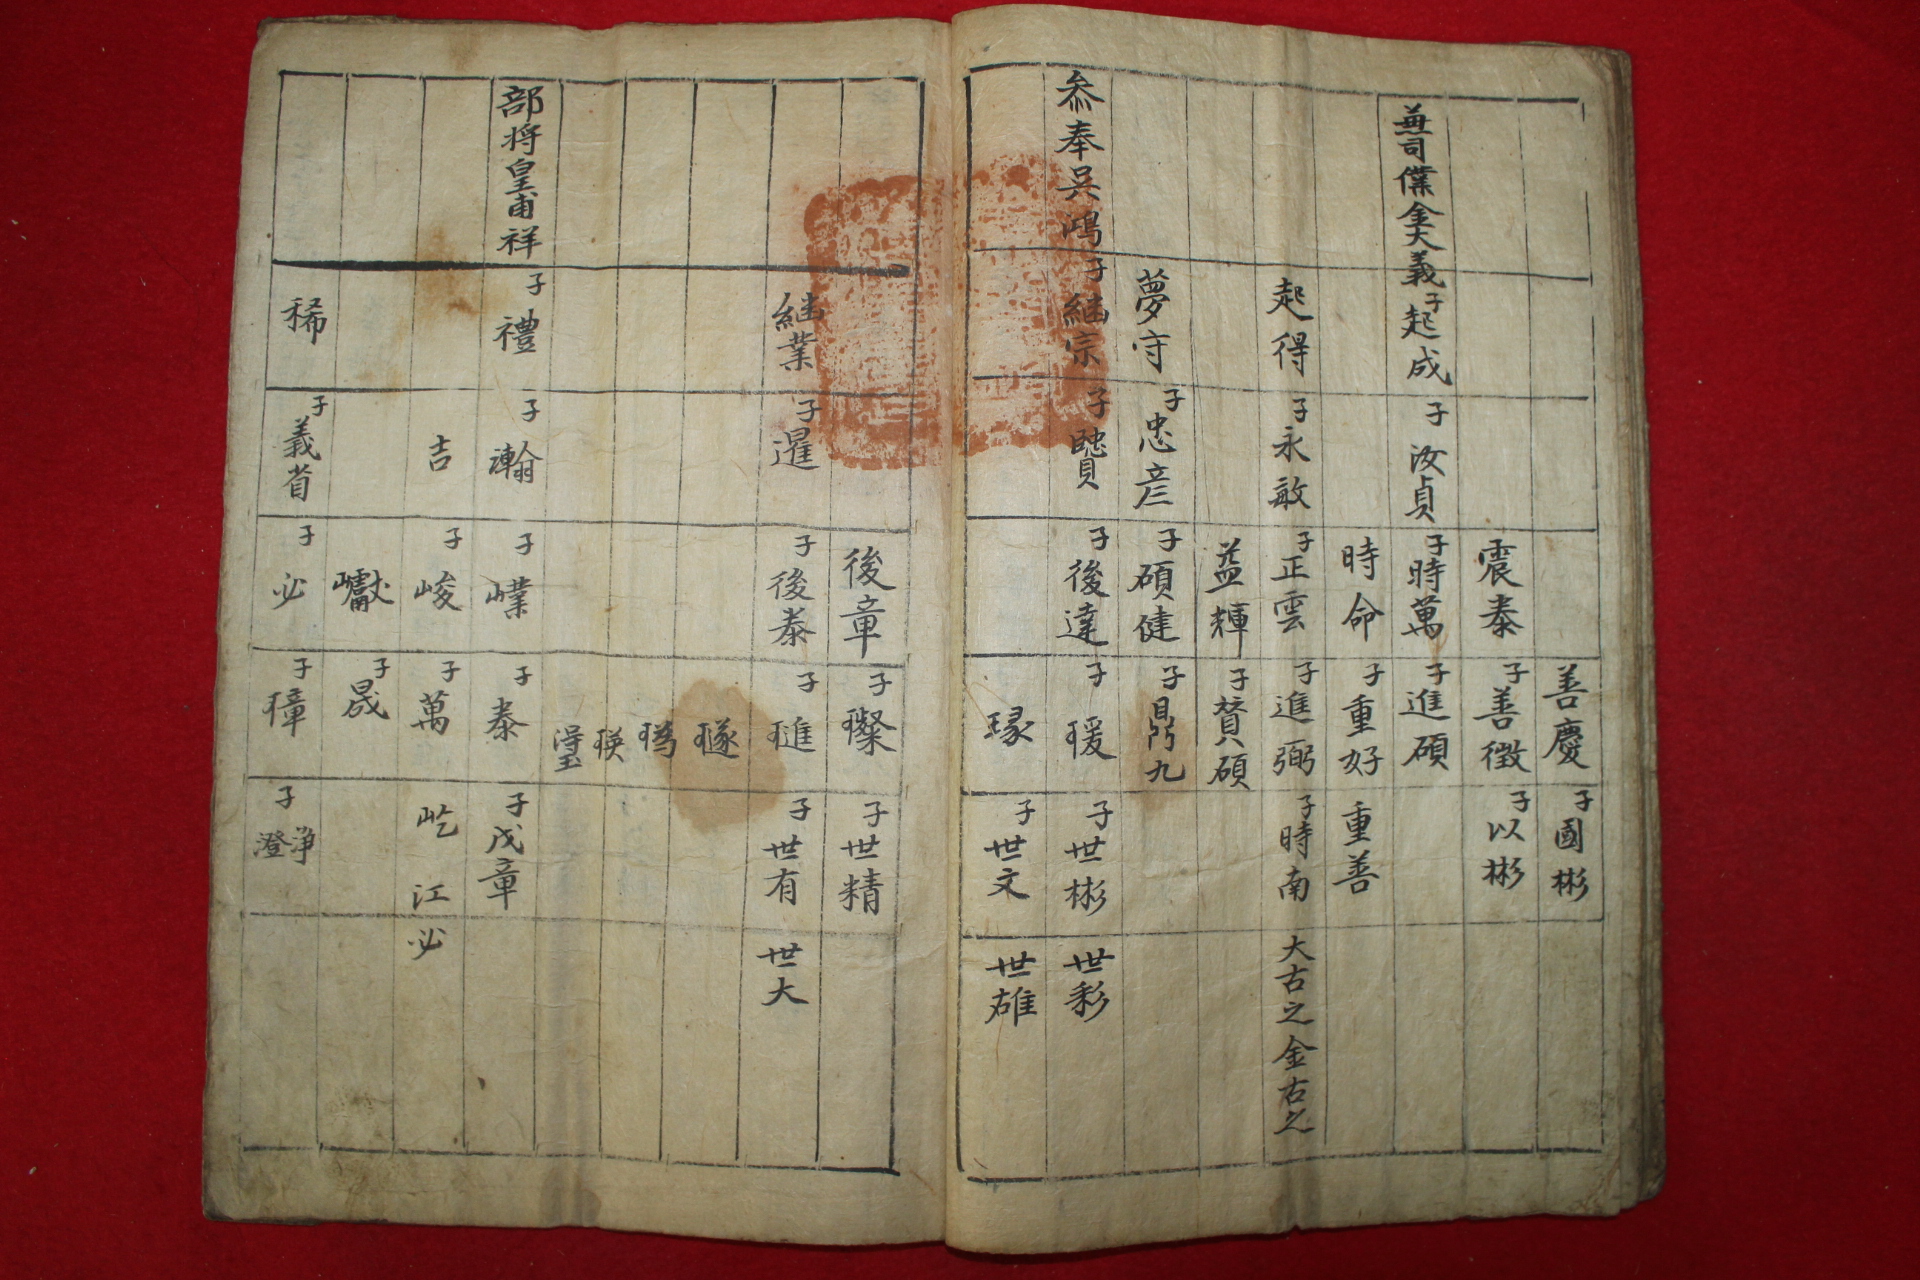 善慶 子國彬
震泰 子善徵 子以彬
兼司僕金大義 子起成 子汝貞 子時萬 子進碩
時命 子重好 重善
起得 子永敏 子正雲 子進弼 子時南 大古之金右之
益輝 子賛碩
夢守 子忠彦 子碩健 子鼎九
叅奉吳鴻 子継宗 子 子後達 子瑗 子世彬 世彩
瑑 子世文 世雄
後章 子璨 子世精
継業 子暹 子後泰 子琎 子世有 世大
璲
瑛
部将皇甫祥 子禮 子瀚 子嶫 子泰 子戊章
吉 子峻 子萬 屹 江 必
巘 子晟
稀 子義省 子必 子璋 子澄 浄